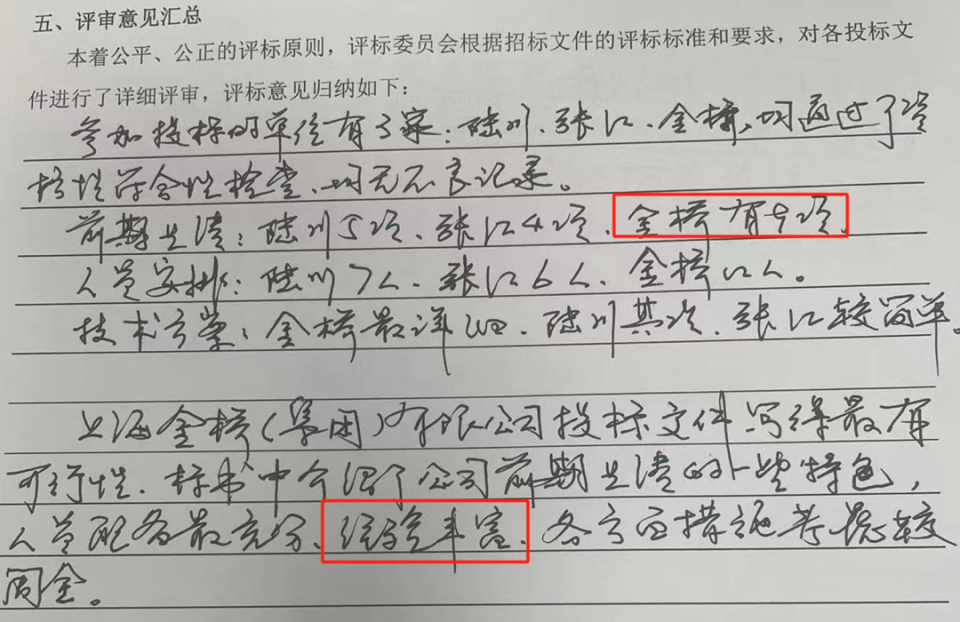 五、评审意见汇总
本着公平、公正的评标原则，评标委员会根据招标文件的评标标准和要求，对各投标文
件进行了详细评审，评标意见归纳如下：
参加投标的单位有3家：陆川、张江、金桥、均通过了资
格性符合性检查、均无不良记录。
前期业绩：陆川5项、张江4项、金桥有9项、
人员安排：陆川7人、张江6人、金桥12人。
技术方案：金桥最详细、陆川其次、张江较简单。
上海金桥（集团）有限公司投标文件写得最有
可行性、标书中介绍了公司前期业绩的一些特色，
人员配备最充分、经验丰富、各方面措施考虑较
周全。